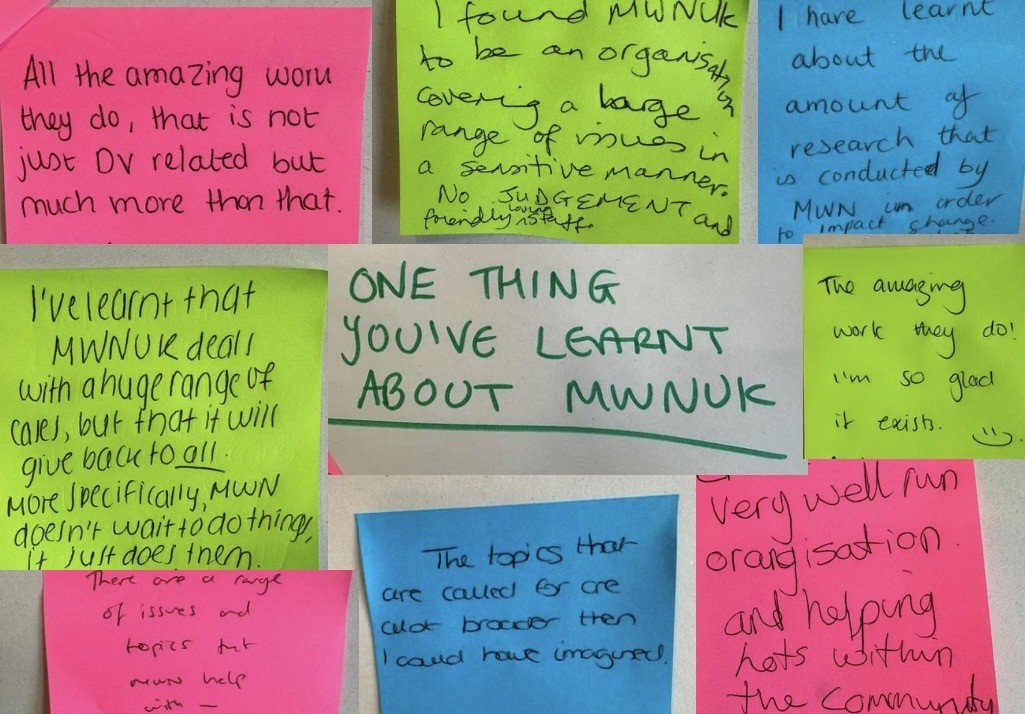 All the amazing woru
they do, that is not
just DV related but
much more than that.
I found MWNUK
to be an organisation
covering a large
range of issues in
a sensitive manner.
No JUDGEMENT and
friendly loving staff.
I have learnt
about the
amount of
research that
is conducted by
MWN in order
to impact change.
I've learnt that
MWNUK deals
with a huge range of
cases, but that it will
give back to all.
More specifically, MWN
doesn't wait to do things,
it just does them.
ONE THING
YOU'VE LEARNT
ABOUT MWNUK
The amazing
work they do!
I'm so glad
it exists. :)
There are a range
of issues and
topics tht
MWN help
with -
The topics that
are called for are
alot broader then
I could have imagined!
very well run
orangisation.
and helping
hots within
the community